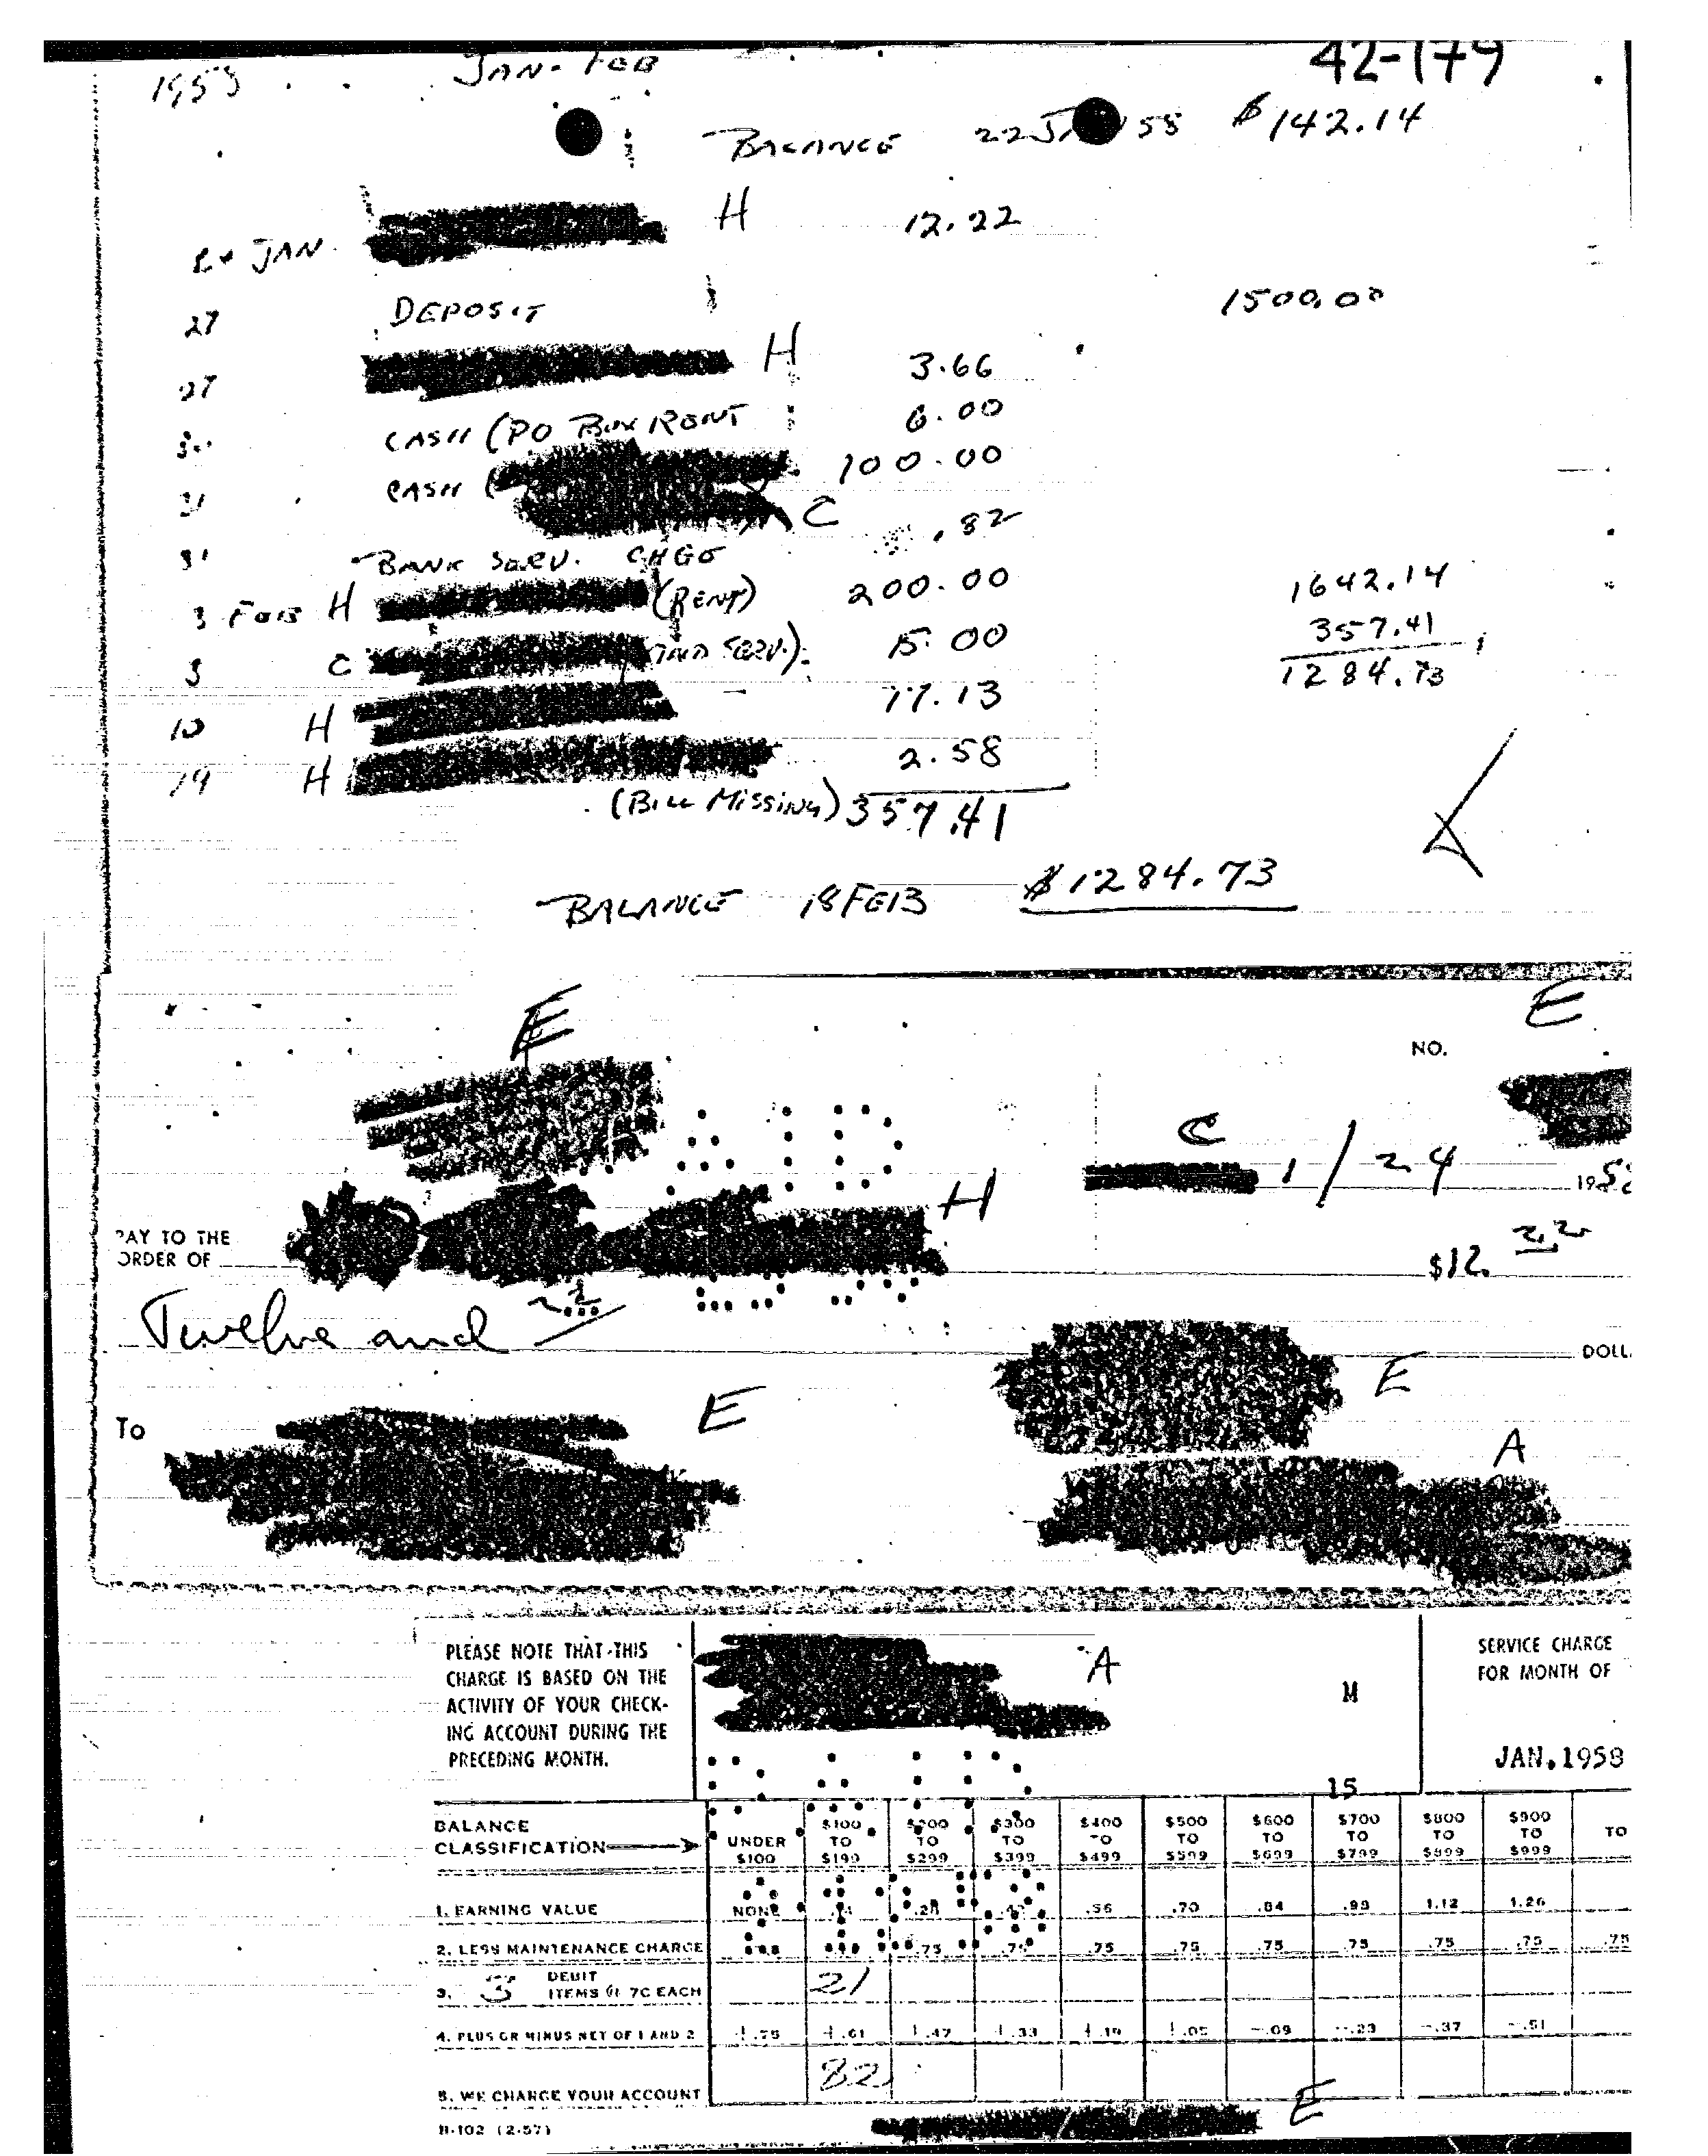 42-179
1958 JAN-FEB
BALANCE 22 58 $142.14
JAN. H 12.22
27 DEPOSIT 1500.00
27 H 3.66
CASH (PO BOX RENT 6.00
31 CASH ( 100.00
C
31 BANK SERV. CHGE .82
3 FEB H (RENT) 200.00 1642.14
3 C SERV.) 15.00 357.41
1284.73
10 H 17.13
19 H 2.58
(BILL MISSING) 357.41
BALANCE 18 FEB $1284.73
E E
NO.
C 1/24 19
H
PAY TO THE
ORDER OF $12. 22
Twelve and 22
E DOLL
To E
A
PLEASE NOTE THAT THIS
CHARGE IS BASED ON THE
ACTIVITY OF YOUR CHECK-
ING ACCOUNT DURING THE
PRECEDING MONTH.
A
M
15
SERVICE CHARGE
FOR MONTH OF
JAN.1958
BALANCE CLASSIFICATION UNDER $100 $100 TO $199 $200 TO $299 $300 TO $399 $400 TO $499 $500 TO $599 $600 TO $699 $700 TO $799 $800 TO $899 $900 TO $999 TO
1. EARNING VALUE NONE .28 .56 .70 .84 .98 1.12 1.26
2. LESS MAINTENANCE CHARGE .75 .75 .75 .75 .75 .75 .75 .75 .75
3. 3 DEBIT ITEMS @ 7C EACH 21
4. PLUS OR MINUS NET OF 1 AND 2 +.75 +.61 +.47 +.33 +.19 +.05 -.09 -.23 -.37 -.51
5. WE CHARGE YOUR ACCOUNT 82
E
B-102 (2-57)